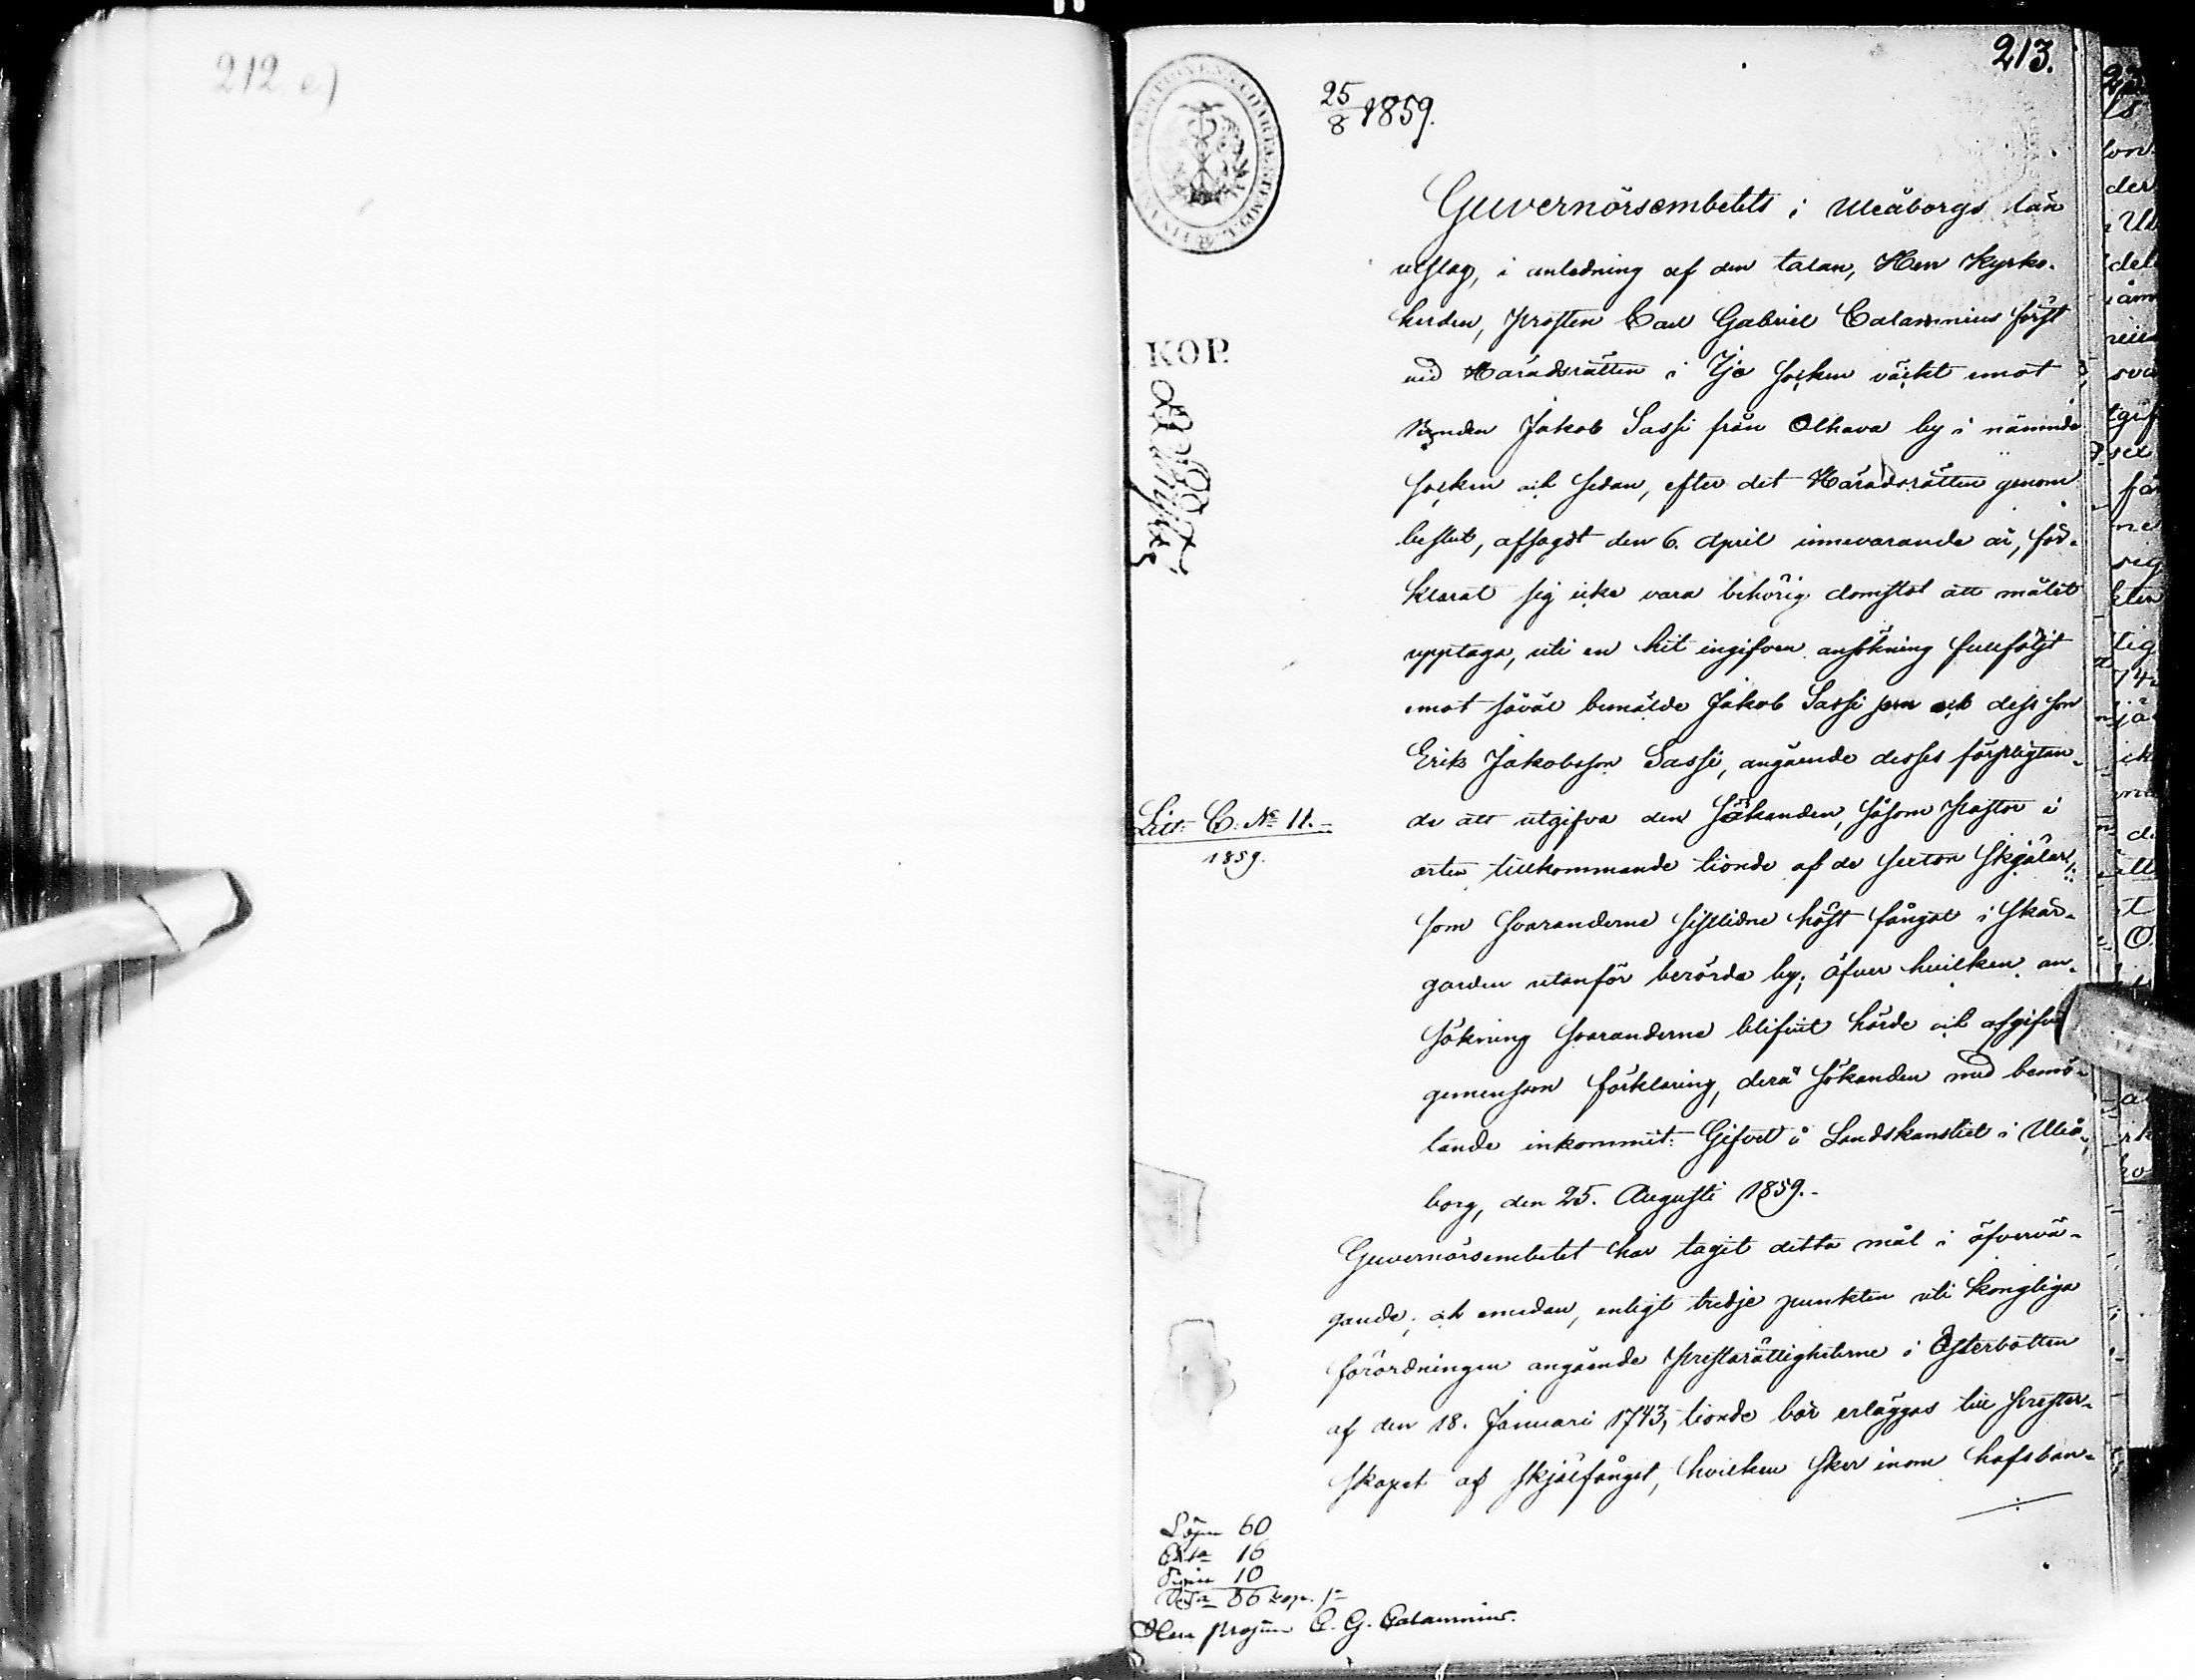 212 e)
213.
25/8 1859.
KOP.
Guvernörsembetets i Uleåborgs län
utslag, i anledning af den talan, Herr Kyrko-
herden, Prosten Carl Gabriel Calamnius först
vid Häradsrätten i Ijo socken väckt emot
Bonden Jakob Sassi från Olhava by i nämnde
socken och sedan, efter det Häradsrätten genom
beslut, afsagdt den 6. April innevarande år, för-
klarat sig icke vara behörig domstol att målet
upptaga, uti en hit ingifven ansökning fullföljt
emot såväl bemälde Jakob Sassi som och dess son
Erik Jakobsson Sassi, angående desses förpligtan-
de att utgifva den Sökanden, såsom Pastor i
orten tillkommande tionde af de sexton Skjälar,
som Svaranderne sistlidne höst fångat i skär-
gården utanför berörde by; öfver hvilken an-
sökning Svaranderne blifvit hörde och afgifvit
gemensam förklaring, derå Sökanden med bemö-
tande inkommit: Gifvet å Landskansliet i Uleå-
borg, den 25. Augusti 1859.-
Litt: C. No 11.
1859.
Guvernörsembetet har tagit detta mål i öfvervä-
gande; och emedan, enligt tredje punkten uti Kongliga
förordningen angående Prestarättigheterne i Österbotten
af den 18. Januari 1743, tionde bör erläggas till Prester-
skapet af skjälfånget, hvilken sker inom hafsban-
Lösen 60
16
10
86 kop. s
Herr Prosten C. G. Calamnius.